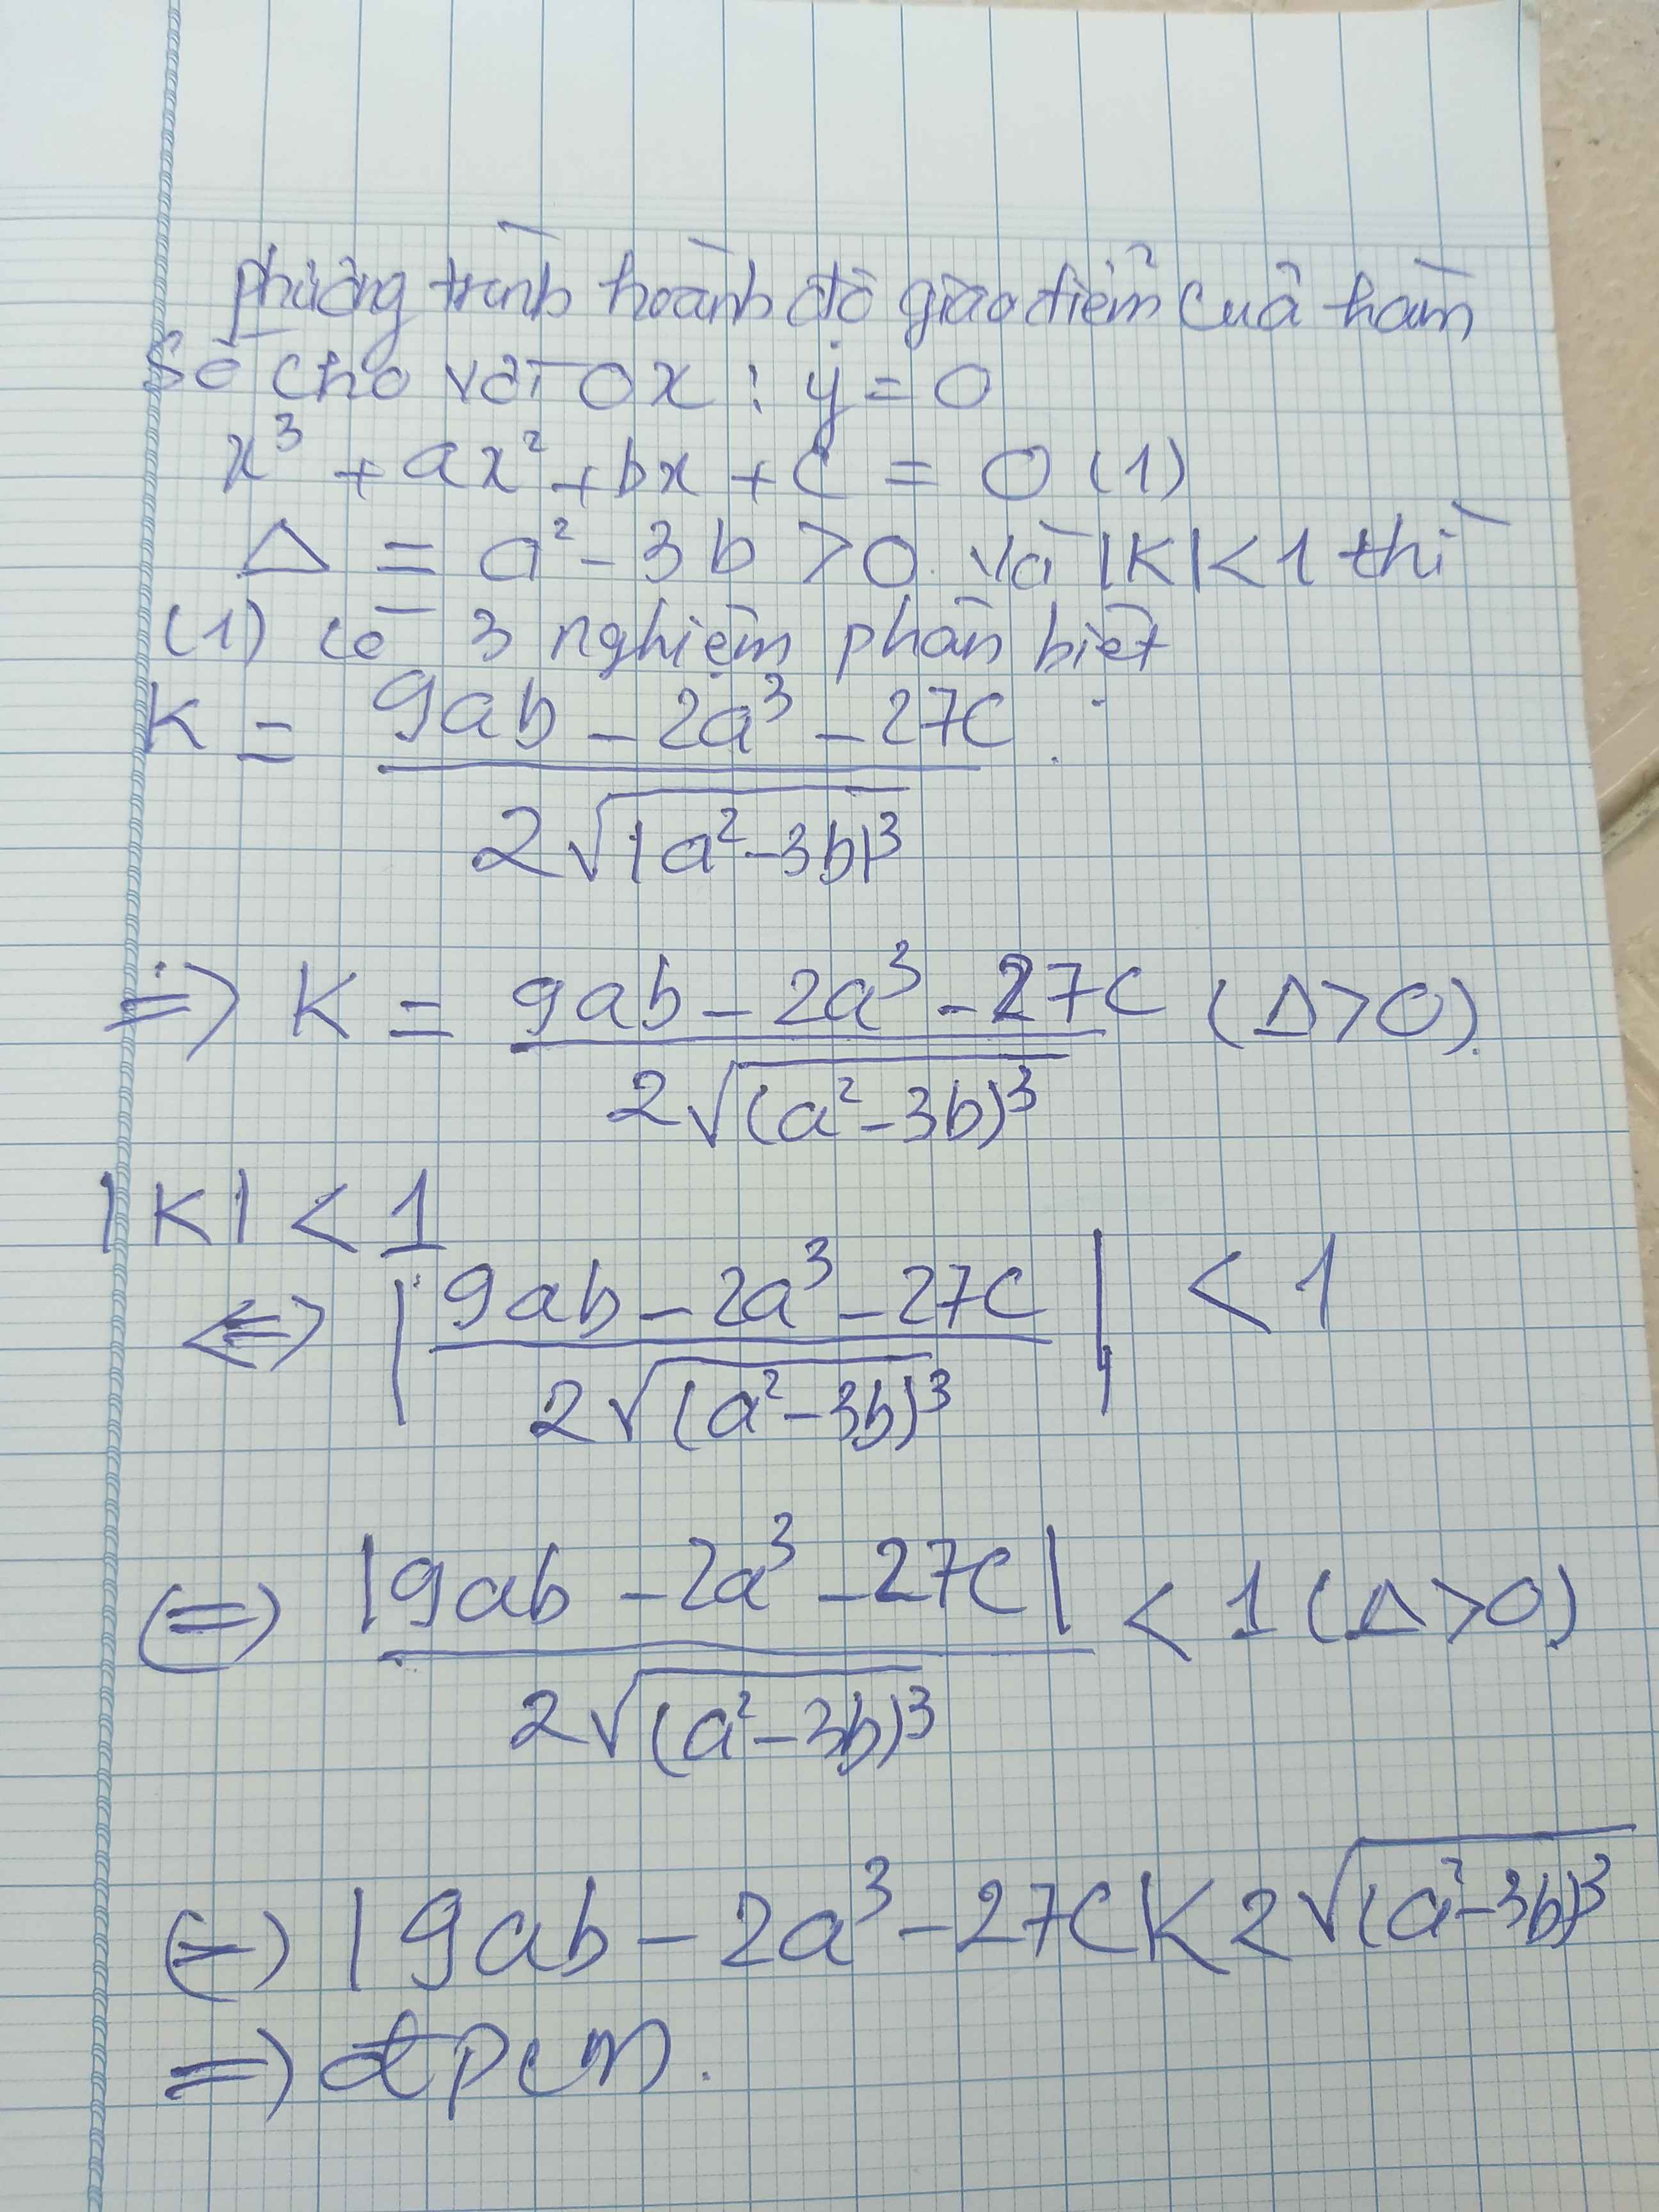 phương trình hoành độ giao điểm của hàm
số cho với Ox : y = 0
x³ + ax² + bx + c = 0 (1)
Δ = a² - 3b > 0 và |K| < 1 thì
(1) có 3 nghiệm phân biệt
K = (9ab - 2a³ - 27c) / (2√|a² - 3b|³) :
=> K = (9ab - 2a³ - 27c) / (2√(a² - 3b)³) (Δ > 0).
|K| < 1
<=> |(9ab - 2a³ - 27c) / (2√(a² - 3b)³)| < 1
(=) |9ab - 2a³ - 27c| / (2√(a² - 3b)³) < 1 (Δ > 0)
(=) |9ab - 2a³ - 27c| < 2√(a² - 3b)³
=> đpcm.